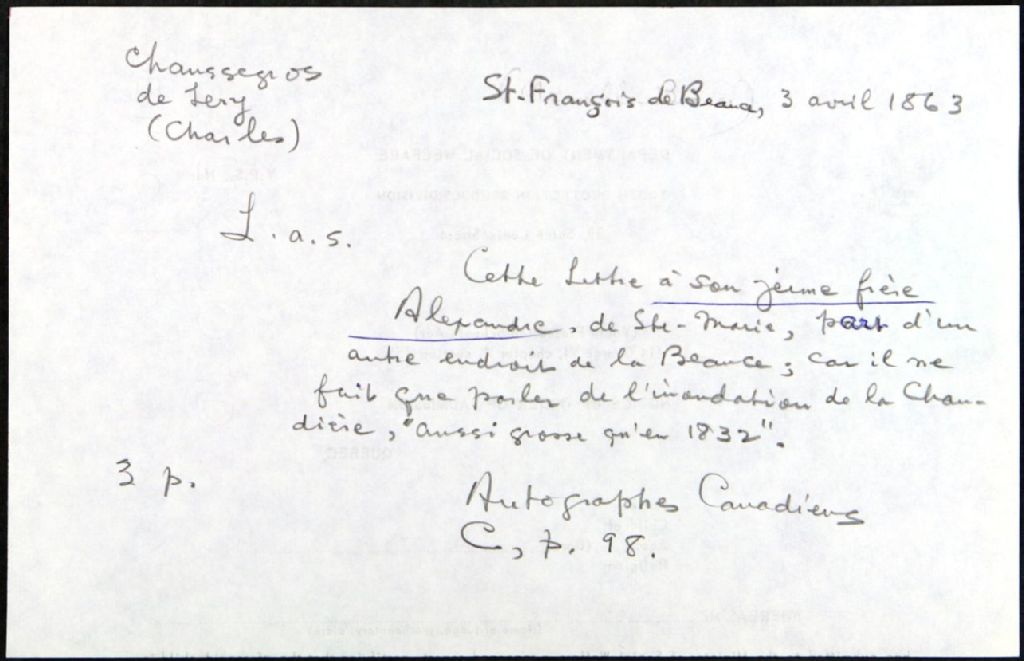 Chaussegros
de Lery
(Charles)
St-François de Beauce, 3 avril 1863
L. a. s.
Cette lettre à son jeune frère
Alexandre, de Ste-Marie, part d'un
autre endroit de la Beauce, car il ne
fait que parler de l'inondation de la Chau-
dière, "aussi grosse qu'en 1832".
3 p.
Autographes Canadiens
C, p. 98.